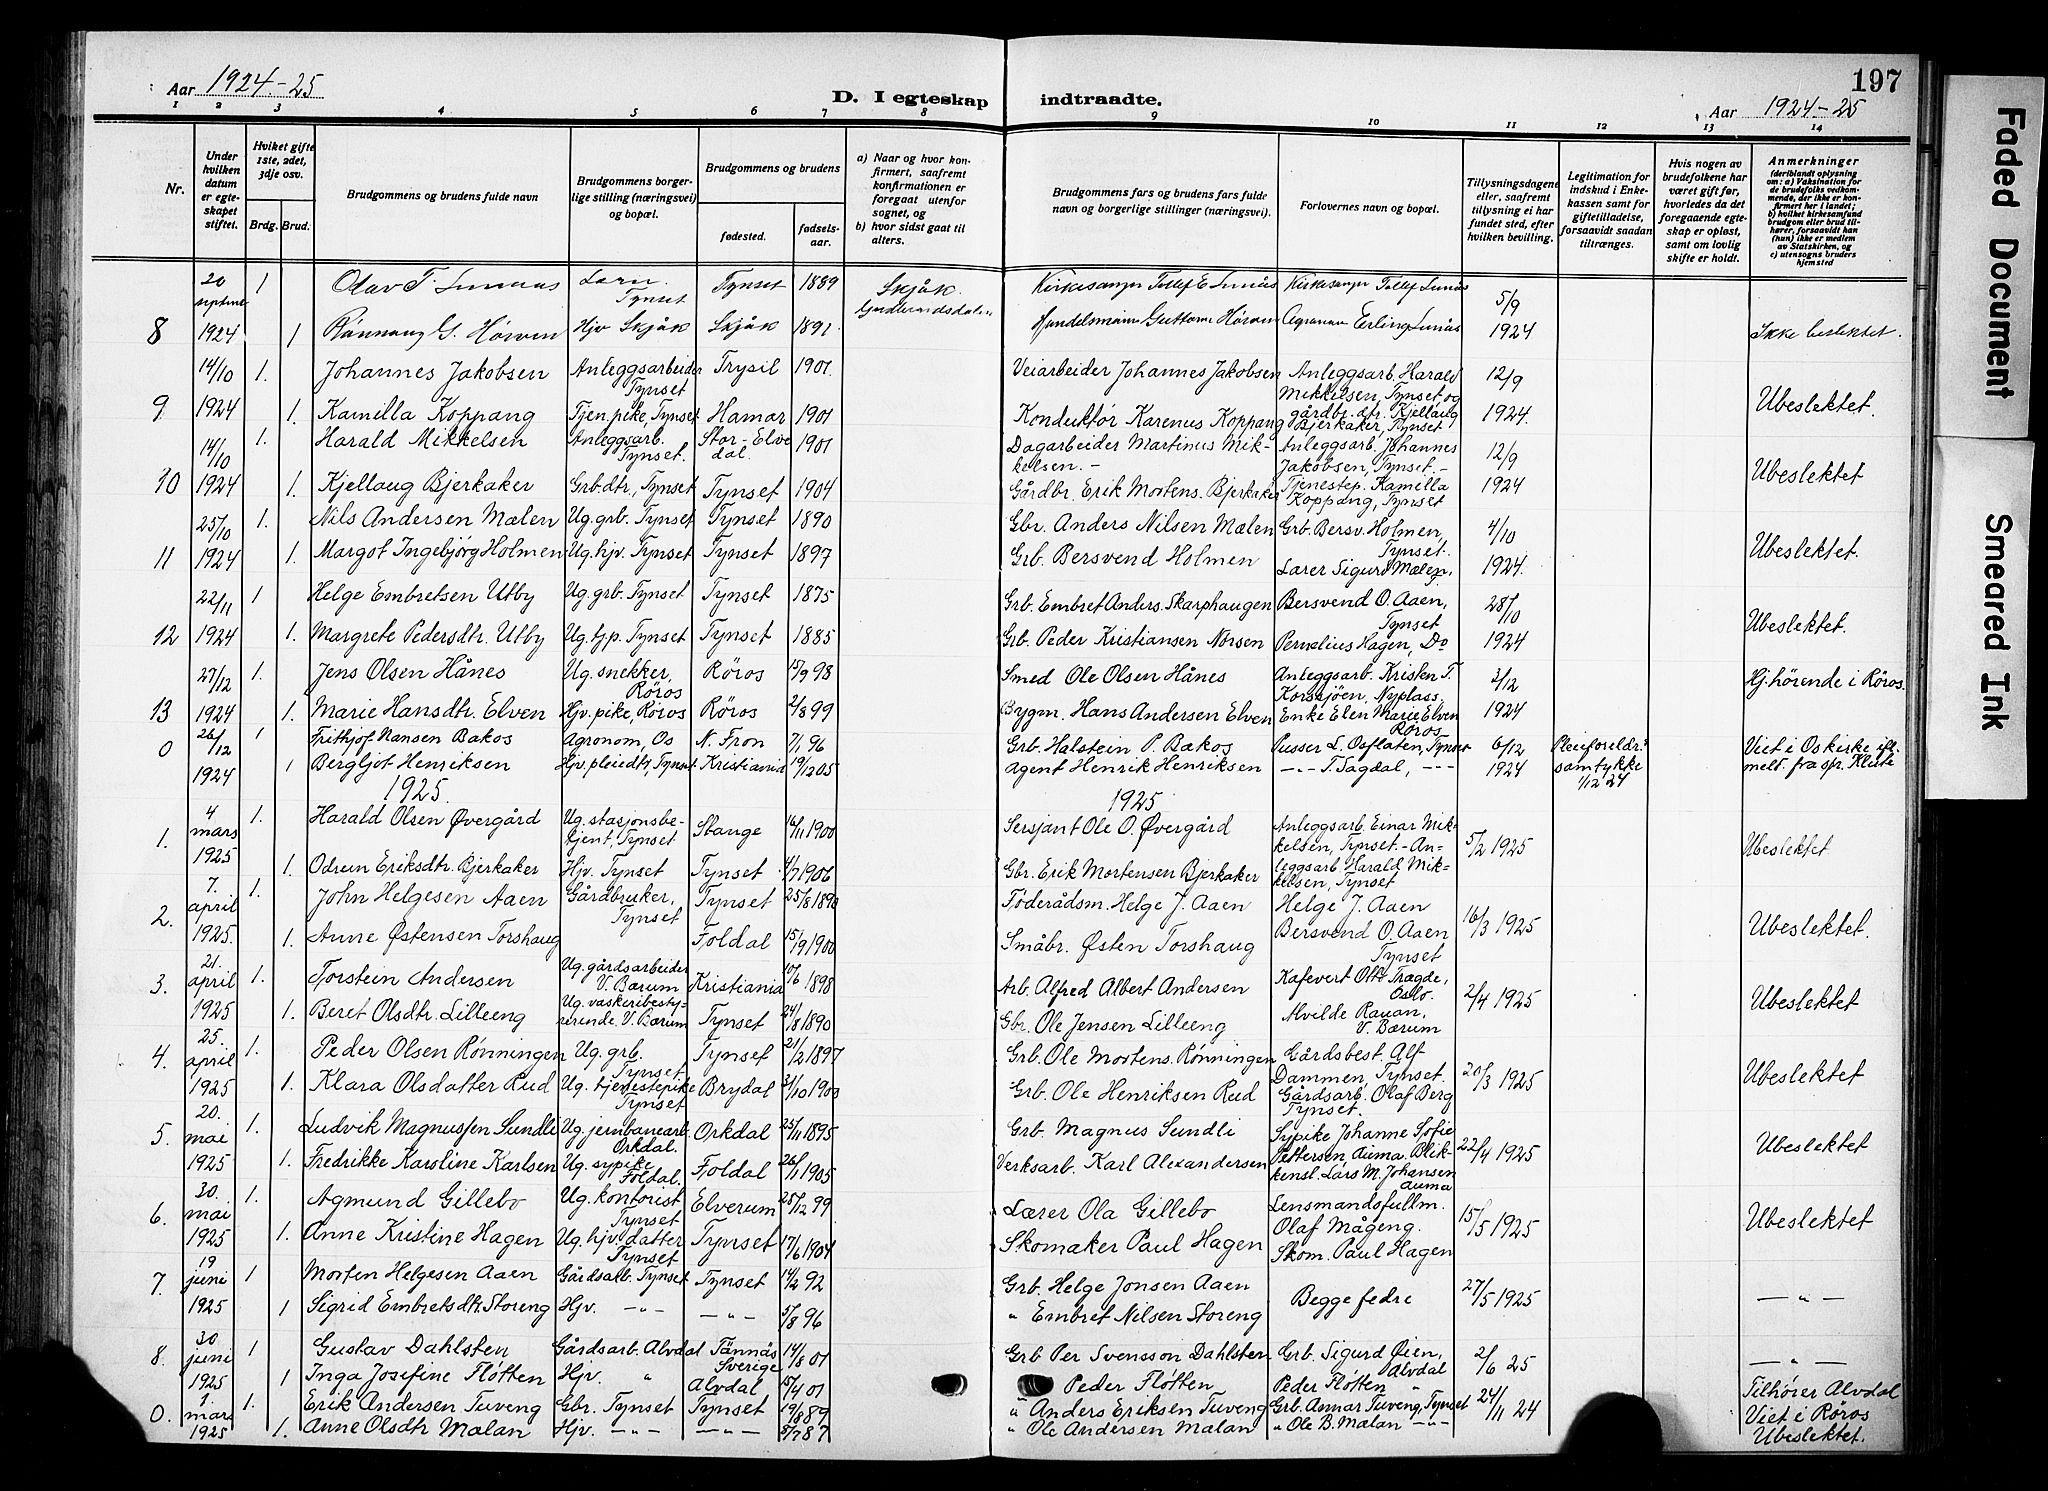 Aar 1924-25
D. I egteskap indtraadte.
Aar 1924-25
197
1 2 3 4 5 6 7 8 9 10 11 12 13 14
Nr.
Under hvilken datum er egteskapet stiftet.
Hviket gifte 1ste, 2det, 3dje osv.
Brdg. Brud.
Brudgommens og brudens fulde navn
Brudgommens borgerlige stilling (næringsvei) og bopæl.
Brudgommens og brudens
fødested.
fødselsaar.
a) Naar og hvor konfirmert, saafremt konfirmationen er foregaat utenfor sognet, og
b) hvor sidst gaat til alters.
Brudgommens fars og brudens fars fulde navn og borgerlige stillinger (næringsvei).
Forlovernes navn og bopæl.
Tillysningsdagene eller, saafremt tillysning ei har fundet sted, efter hvilken bevilling.
Legitimation for indskud i Enkekassen samt for giftetilladelse, forsaavidt saadan tiltrænges.
Hvis nogen av brudefolkene har været gift før, hvorledes da det foregaaende egteskap er opløst, samt om lovlig skifte er holdt.
Anmerkninger (deriblandt oplysning om: a) Vaksination for de brudefolks vedkommende, der ikke er konfirmert her i landet; b) hvilket kirkesamfund brudgom eller brud tilhører, forsaavidt han (hun) ikke er medlem av Statskirken, og c) utensogns bruders hjemsted
20 1 Olav T. Tynset Tynset 1889 Skjåk Kirkesanger 5/9
8 1924 1 Rønnaug G. Hørven Hjv Skjåk Skjåk 1891 Gudbrandsdalen Handelsmann Guttorm Agronom Erling 1924 Ikke beslektet.
14/10 1. Johannes Jakobsen Anleggsarbeider Tynset Trysil 1901. Veiarbeider Johannes Jakobsen Anleggsarb. Harald Mikkelsen, Tynset og 12/9
9 1924 1. Kamilla Koppang Tjen.pike, Tynset Hamar 1901 Konduktør Karenus Koppang gårdbr. dtr. Kjellaug Bjerkaker, Tynset 1924. Ubeslektet.
14/10 1. Harald Mikkelsen Anleggsarb. Tynset. Stor-Elvedal. 1901 Dagarbeider Martinus Mikkelsen. - Anleggsarb. Johannes Jakobsen, Tynset. - 12/9
10 1924 1. Kjellaug Bjerkaker Grb.dtr., Tynset Tynset 1904 Gårdbr. Erik Mortens. Bjerkaker Tjenestep. Kamilla Koppang, Tynset 1924 Ubeslektet
25/10 1. Nils Andersen Mælen Ug. grb. Tynset Tynset 1890 Gbr. Anders Nilsen Mælen Grb. Bersv. Holmen, Tynset. 4/10
11 1924 1. Margot Ingebjørg Holmen Ug. hjv. Tynset Tynset 1897 Grb. Bersvend Holmen Lærer Sigurd Mælen, 1924. Ubeslektet.
22/11 1 Helge Embretsen Utby Ug. grb. Tynset Tynset 1875 Grb. Embret Anders. Skarphaugen Bersvend O. Aaen, Tynset 28/10
12 1924 1. Margrete Pedersdtr. Utby Ug. tjp. Tynset Tynset 1885 Grb. Peder Kristiansen Nørsen Pernelius Hagen, Do 1924 Ubeslektet.
27/12 1. Jens Olsen Hånes Ug. snekker, Röros Röros 15/9 98 Smed Ole Olsen Hånes Anleggsarb. Kristen T. Korssjöen, Nyplass. 2/12 Hj.hörende i Röros.
13 1924 1. Marie Hansdtr. Elven Hjv. pike, Röros Röros 2/8 99 Bygm. Hans Andersen Elven Enke Elen Marie Elven Röros 1924
0 26/12 1 Frithjof Nansen Bakos Agronom, Os N. Fron 7/1 96 Grb. Halstein P. Bakos Pusser L. Osflaten, Tynset 6/12 Pleieforeldr. Viet i Os kirke ifl.
1924 1 Bergljot Henriksen Hjv. pleiedtr, Tynset Kristiania 19/12 05 Agent Henrik Henriksen -"- T. Sagdal, -"- 1924 samtykke 1/12 24 melt. fra spr. Kleive
1925.
1925
1. 4 mars 1925 1. Harald Olsen Øvergård Ug. stasjonsbetjent, Tynset Stange 16/11 1900 Sersjant Ole O. Øvergård Anleggsarb. Einar Mikkelsen, Tynset. - Anleggsarb. Harald Mikkelsen, Tynset 5/2 1925 Ubeslektet
1. Odrun Eriksdtr. Bjerkaker Hjv. Tynset Tynset 4/7 1906 Gbr. Erik Mortensen Bjerkaker
2. 7. april 1925. 1. John Helgesen Aaen Gårdbruker, Tynset Tynset 25/8 1890 Föderådsm. Helge J. Aaen Helge J. Aaen 16/3 1925 Ubeslektet.
1. Anne Østensen Torshaug Foldal 15/9 1900 Småbr. Østen Torshaug Bersvend O. Aaen Tynset
3. 21. april 1925 1. Torstein Andersen Ug. gårdsarbeider V. Bærum Kristiania 10/6 1898 Arb. Alfred Albert Andersen Kafevert Otto Trægde, Oslo. 2/4 1925 Ubeslektet
1. Beret Olsdtr. Lilleeng Ug. vaskeribestyrerinde, V. Bærum Tynset 24/8 1890 Gbr. Ole Jensen Lilleeng Alvilde Rauan, V. Bærum
4. 25. april 1925 1. Peder Olsen Rønningen Ug. grb. Tynset Tynset 21/2 1897 Grb. Ole Mortens. Rønningen Gårdsbest. Alf Dammen, Tynset. 20/3 1925 Ubeslektet
1. Klara Olsdatter Rud Ug. tjenestepike Tynset Brydal 31/10 1900 Grb. Ole Henriksen Rud Gårdsarb. Olaf Berg Tynset.
5. 20. mai 1925 1. Ludvik Magnussen Sundli Ug. jernbanearb. Orkdal. Orkdal 25/11 1895 Grb. Magnus Sundli Sypike Johanne Sofie Pettersen Auma. 22/4 1925 Ubeslektet
1. Fredrikke Karoline Karlsen Ug. sypike Foldal. Foldal 26/11 1905 Verksarb. Karl Alexandersen Blikkensl. Lars M. Johansen Auma
6. 30. mai 1925 1. Agmund Gillebo Ug. kontorist Tynset Elverum 25/12 99 Lærer Ola Gillebo Lensmandsfullm. Olaf Mågeng. 15/5 1925 Ubeslektet
1. Anne Kristine Hagen Ug. hjv. datter Tynset Tynset 17/6 1904 Skomaker Paul Hagen Skom. Paul Hagen
7. 19 juni 1925 1 Morten Helgesen Aaen Gårdsarb. Tynset Tynset 14/2 92 Grb. Helge Jonsen Aaen Begge fedre 27/5 1925 -"-
1 Sigrid Embretsdtr. Storeng Hjv. -"- -"- 5/8 96 " Embret Nilsen Storeng
8. 30 juni 1925 1 Gustav Dahlsten Gårdsarb. Alvdal Tännäs Sverige 14/8 01 Grb Per Svensson Dahlsten Grb. Sigurd Øien, Alvdal 2/6 25 -"-
1 Inga Josefine Fløtten Hjv. " Alvdal 15/4 01 Peder Fløtten Peder Fløtten " Tilhører Alvdal
0. 1. mars 1925 1. Erik Andersen Tuveng Gbr. Tynset Tynset 19/8 89 " Anders Eriksen Tuveng Grb. Annar Tuveng, Tynset 24/11 24 Viet i Røros
1. Anne Olsdtr Malan Hjv. -"- -"- 5/7 87 " Ole Andersen Malan " Ole B. Malan -"- Ubeslektet.
Faded Document
Smeared Ink